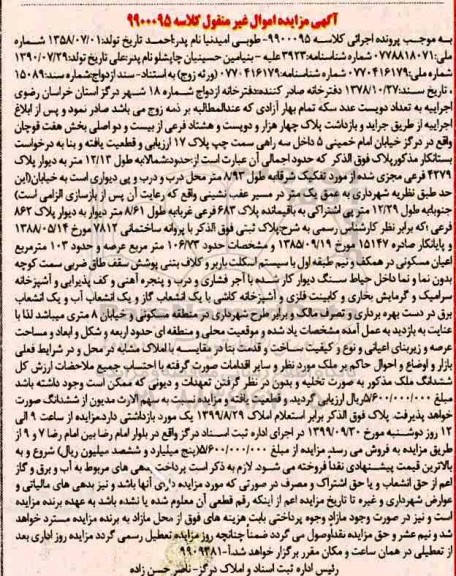 آگهی مزایده اموال غیر منقول کلاسه 9900095
به موجب پرونده اجرائی کلاسه 9900095- طوبی امیدنیا نام پدر:احمد تاریخ تولد:1358/07/01 شماره
ملی:0778818071 شماره شناسنامه:3923 علیه - بنیامین حسینیان چاپشلو نام پدر:علی تاریخ تولد:1390/07/29
شماره ملی:0770416179 شماره شناسنامه:0770416179 (ورثه زوج) به استناد- سند ازدواج شماره سند:15089
، تاریخ سند:1378/10/27 دفترخانه صادر کننده:دفترخانه ازدواج شماره 18 شهر درگز استان خراسان رضوی
اجراییه به تعداد دویست عدد سکه تمام بهار آزادی که عندالمطالبه بر ذمه زوج می باشد صادر نمود و پس از ابلاغ
اجراییه از طریق جراید و بازداشت پلاک چهار هزار و دویست و هشتاد فرعی از بیست و دو اصلی بخش هفت قوچان
واقع در درگز خیابان امام خمینی 5 داخل سه راهی سمت چپ پلاک 17 ارزیابی و قطعیت یافته و بنا به درخواست
بستانکار مذکور پلاک فوق الذکر که حدود اجمالی آن عبارت است از:حدود:شمالا به طول 12/13 متر به دیوار پلاک
4279 فرعی مجزی شده از مورد تفکیک شرقا به طول 8/93 متر محل درب و درب و پی دیواری است به خیابان(این
حد طبق نظریه شهرداری به عمق یک متر در مسیر عقب نشینی واقع که رعایت آن پس از بازسازی الزامی است)
جنوبا به طول 12/29 متر پی اشتراکی به باقیمانده پلاک 683 فرعی غربا به طول 8/61 متر دیوار به دیوار پلاک 862
فرعی ،که برابر نظر کارشناس رسمی به شرح:پلاک ثبتی فوق الذکر با پروانه ساختمانی 7812 مورخ 1388/05/14
و پایانکار صادره 15147 مورخ 1385/09/19 و مشخصات حدود 106/73 متر مربع عرصه و حدود 103 مترمربع
اعیان مسکونی در همکف و نیم طبقه اول با سیستم اسکلت باربر و کلاف بتنی پوشش سقف طاق ضربی سمت کوچه
بدون نما و نما داخل حیاط سنگ دیوار کار شده با آجر فشاری و درب و پنجره آهنی و کف پذیرایی و آشپزخانه
سرامیک و گرمایش بخاری و کابینت فلزی و آشپزخانه کاشی با یک انشعاب گاز و یک انشعاب آب و یک انشعاب
برق در دست بهره برداری و تصرف مالک و برابر طرح شهرداری در منطقه مسکونی و خیابان 8 متری میباشد لذا با
عنایت به بازدید به عمل آمده مشخصات یاد شده و موقعیت محلی و منطقه ای حدود اربعه و شکل و ابعاد و مساحت
عرصه و زیربنای اعیانی و نوع و کیفیت ساخت و قدمت بنا در مقایسه با املاک مشابه در محل و در شرایط فعلی
بازار و اوضاع و احوال حاکم بر ملک مورد نظر و سایر اقدامات صورت گرفته با احتساب جمیع ملاحضات ارزش کل
ششدانگ ملک مذکور به صورت تخلیه و بدون در نظر گرفتن تعهدات و دیونی که ممکن است وجود داشته باشد
مبلغ 5/600/000/000ریال ارزیابی گردید، و قطعیت یافته و مزایده نسبت به سهم الارث مدیون از ششدانگ صورت
خواهد پذیرفت. پلاک فوق الذکر برابر استعلام املاک 1399/8/29 یک مورد بازداشتی دارد.مزایده از ساعت 9 الی
12 روز دوشنبه مورخ 1399/09/30 در اجرای اداره ثبت اسناد درگز واقع در بلوار امام رضا بین امام رضا 7 و 9 از
طریق مزایده به فروش می رسد. مزایده از مبلغ 5/600/000/000(پنج میلیارد و ششصد میلیون ریال) شروع و به
بالاترین قیمت پیشنهادی نقدا فروخته می شود. لازم به ذکر است پرداخت بدهی های مربوط به آب و برق و گاز
اعم از حق انشعاب و یا حق اشتراک و مصرف در صورتی که مورد مزایده دارای آنها باشد و نیز بدهی های مالیاتی و
عوارض شهرداری و غیره تا تاریخ مزایده اعم از اینکه رقم قطعی آن معلوم شده یا نشده باشد به عهده برنده مزایده
است و نیز در صورت وجود مازاد وجوه پرداختی بابت هزینه های فوق از محل مازاد به برنده مزایده مسترد خواهد
شد و نیم عشر و حق مزایده نقدا وصول می گردد ضمنا چنانچه روز مزایده تعطیل رسمی گردد مزایده روز اداری بعد
از تعطیلی در همان ساعت و مکان مقرر برگزار خواهد شد.آ-9909381
رئیس اداره ثبت اسناد و املاک درگز- ناصر حسن زاده